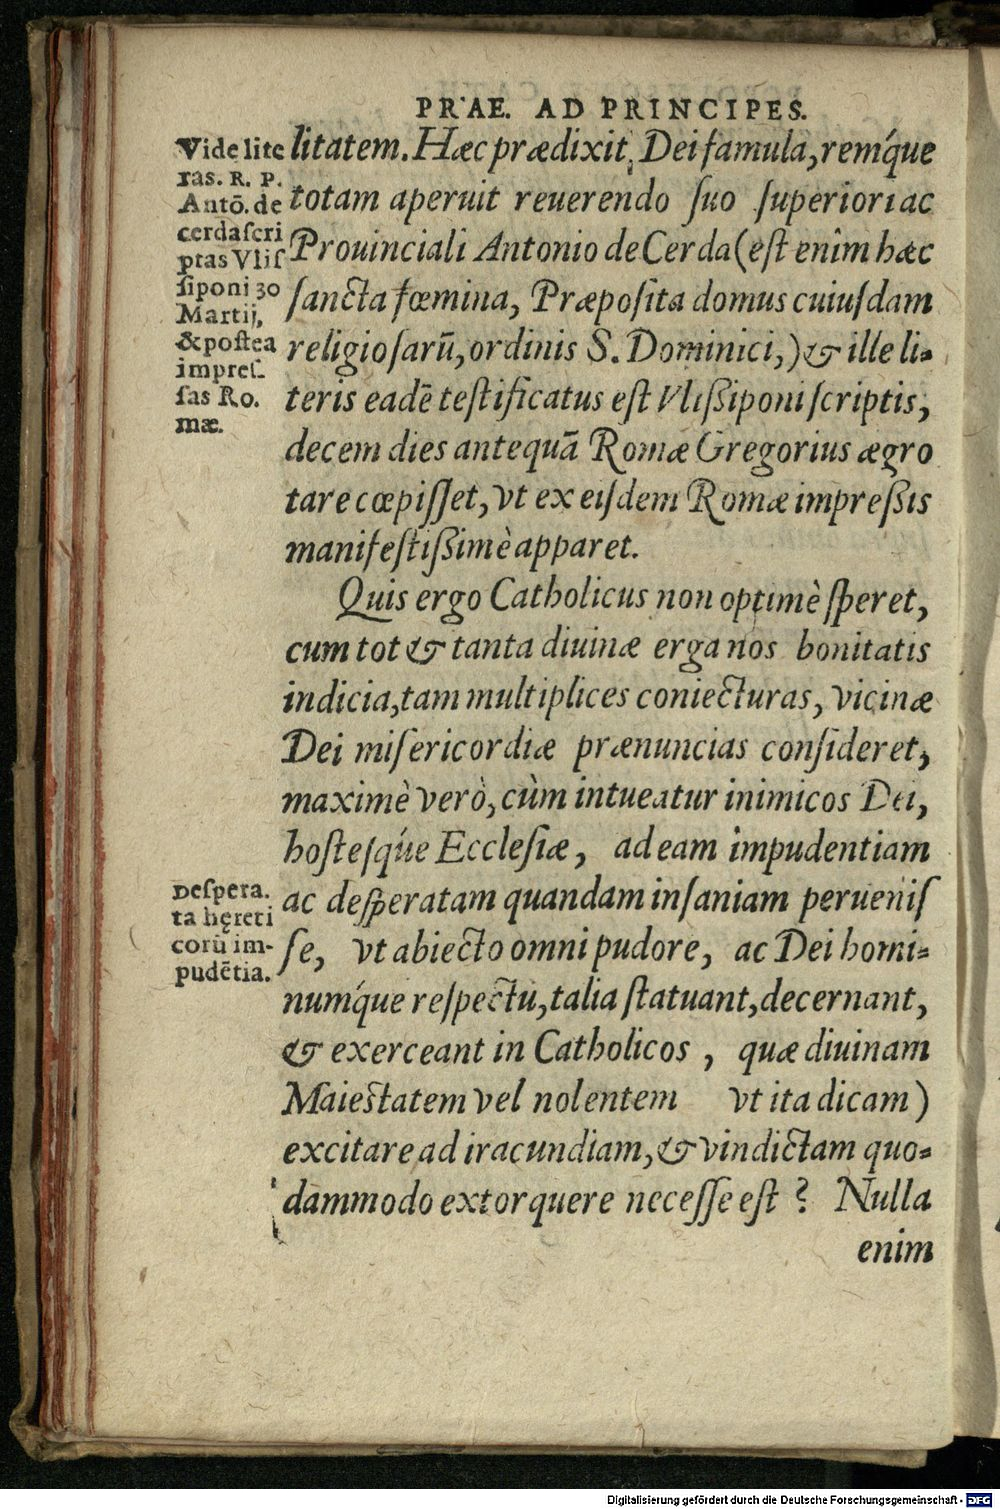 PRAE. AD PRINCIPES.
litatem. Hæc prædixit Dei famula, remq́ue
totam aperuit reuerendo suo superiori ac
Prouinciali Antonio de Cerda (est enim hæc
sancta fœmina, Præposita domus cuiusdam
religiosarū, ordinis S. Dominici,) & ille li-
teris eadē testificatus est Vlißiponi scriptis,
decem dies antequā Romæ Gregorius ægro
tare cœpisset, vt ex eisdem Romæ impreßis
manifestißimè apparet.
Quis ergo Catholicus non optimè speret,
cum tot & tanta diuinæ erga nos bonitatis
indicia, tam multiplices coniecturas, vicinæ
Dei misericordiæ prænuncias consideret,
maximè verò, cùm intueatur inimicos Dei,
hostesq́ue Ecclesiæ, ad eam impudentiam
ac desperatam quandam insaniam peruenis
se, vt abiecto omni pudore, ac Dei homi-
numq́ue respectu, talia statuant, decernant,
& exerceant in Catholicos, quæ diuinam
Maiestatem vel nolentem vt ita dicam)
excitare ad iracundiam, & vindictam quo-
dammodo extorquere necesse est? Nulla
enim
Vide lite
ras. R. P.
Antō. de
cerda scri
ptas Vlis
siponi 30
Martij,
& postea
impres-
sas Ro.
mæ.
Despera.
ta hęreti
corū im-
pudētia.
Digitalisierung gefördert durch die Deutsche Forschungsgemeinschaft - DFG